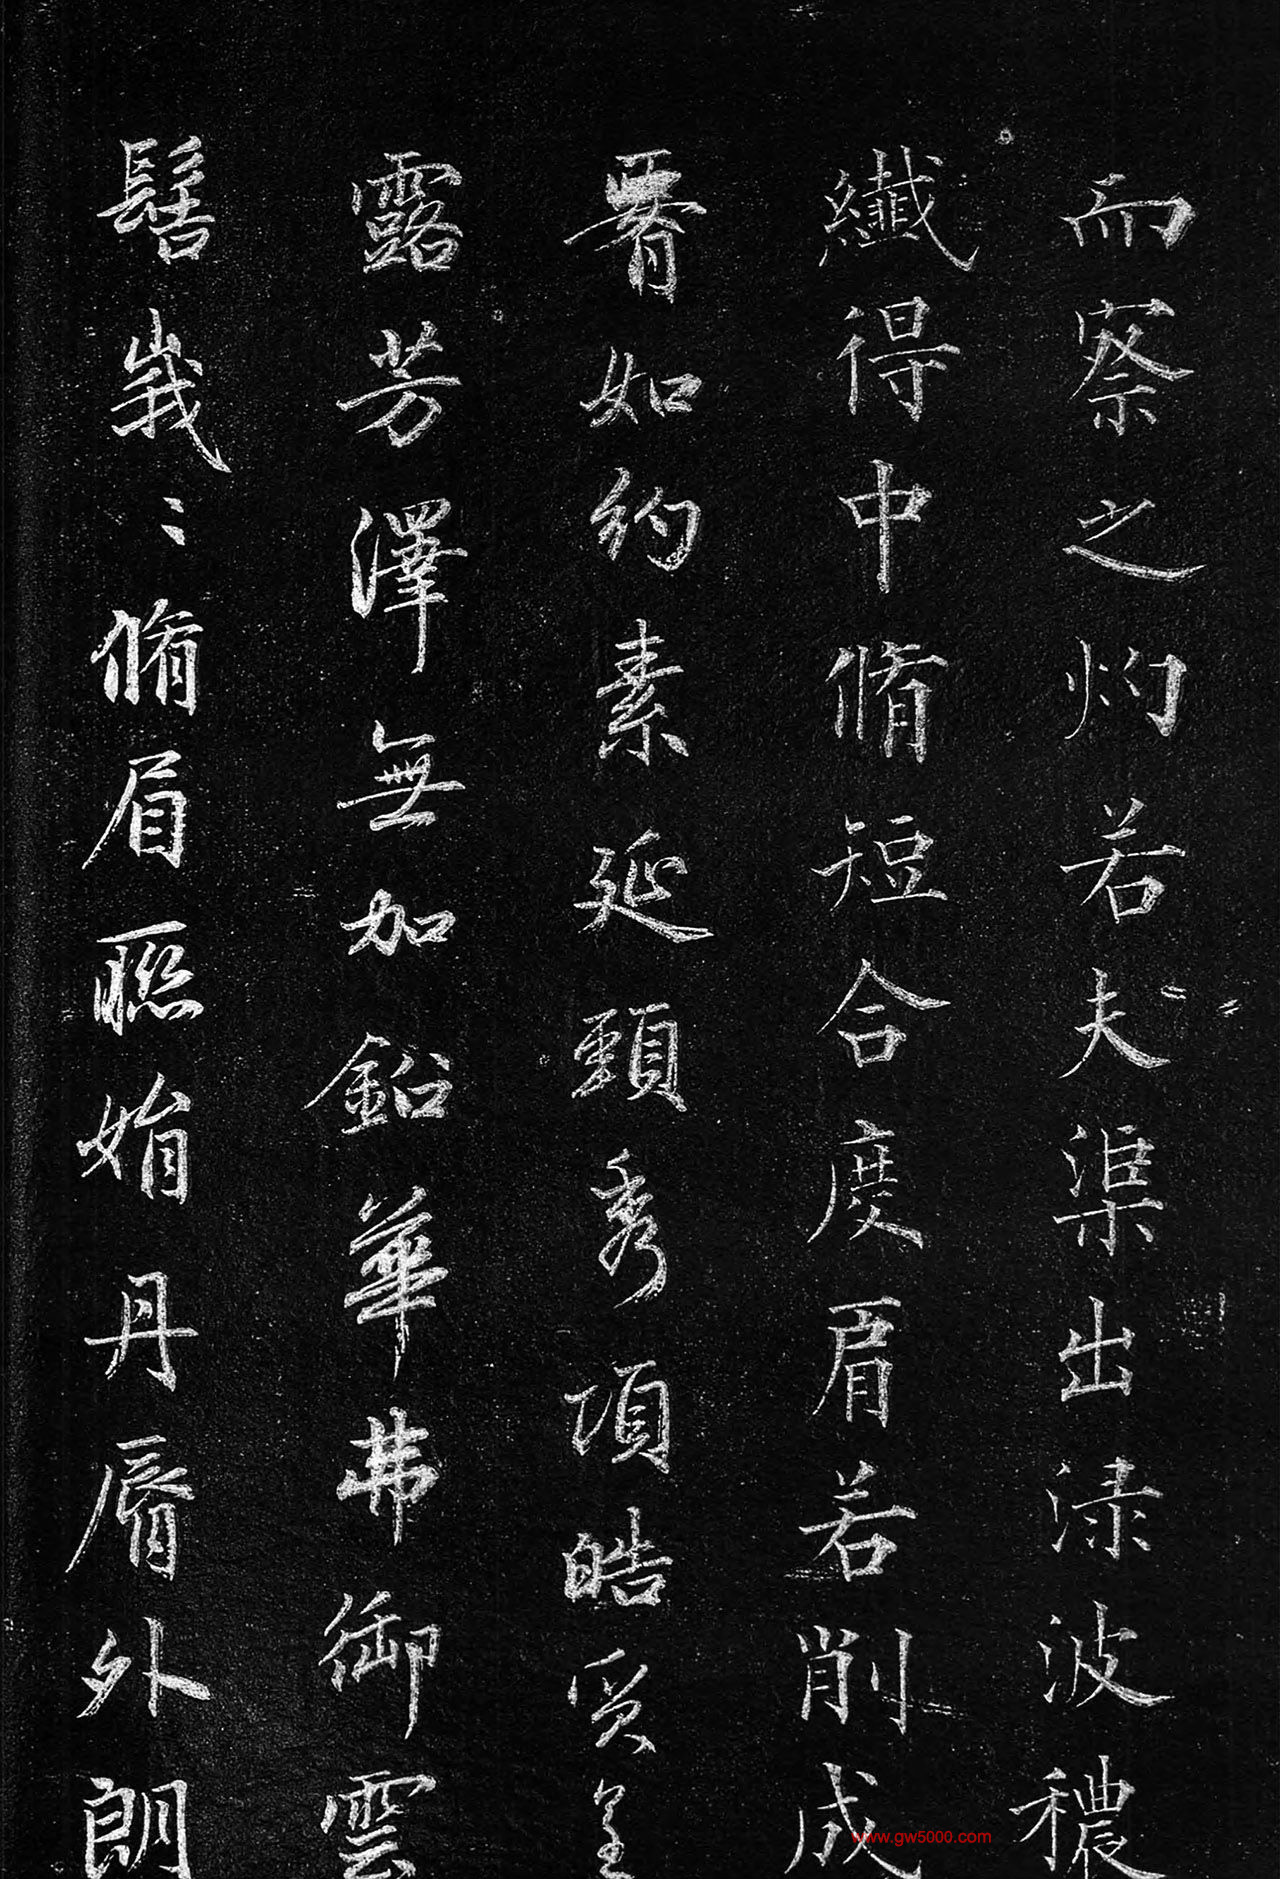 而察之灼若夫渠出渌波穠
纖得中脩短合度肩若削成
腰如約素延頸秀項皓質呈
露芳澤無加鉛華弗御雲
髻峩〻脩眉聯娟丹脣外朗
www.gw5000.com